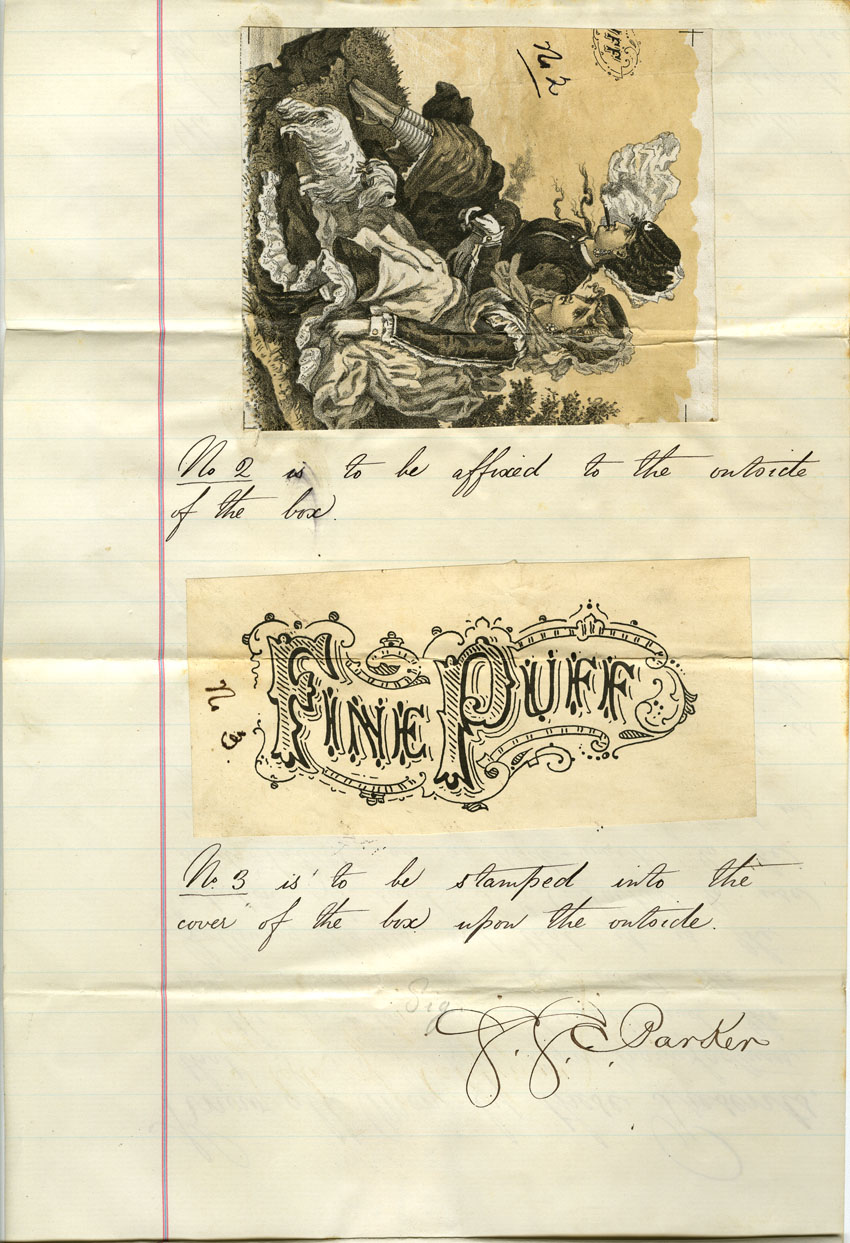 No 2
UFF
No 2 is to be affixed to the outside
of the box.
No 3.
FINE PUFF
No. 3 is to be stamped into the
cover of the box upon the outside.
Sig.
J. J. C. Parker